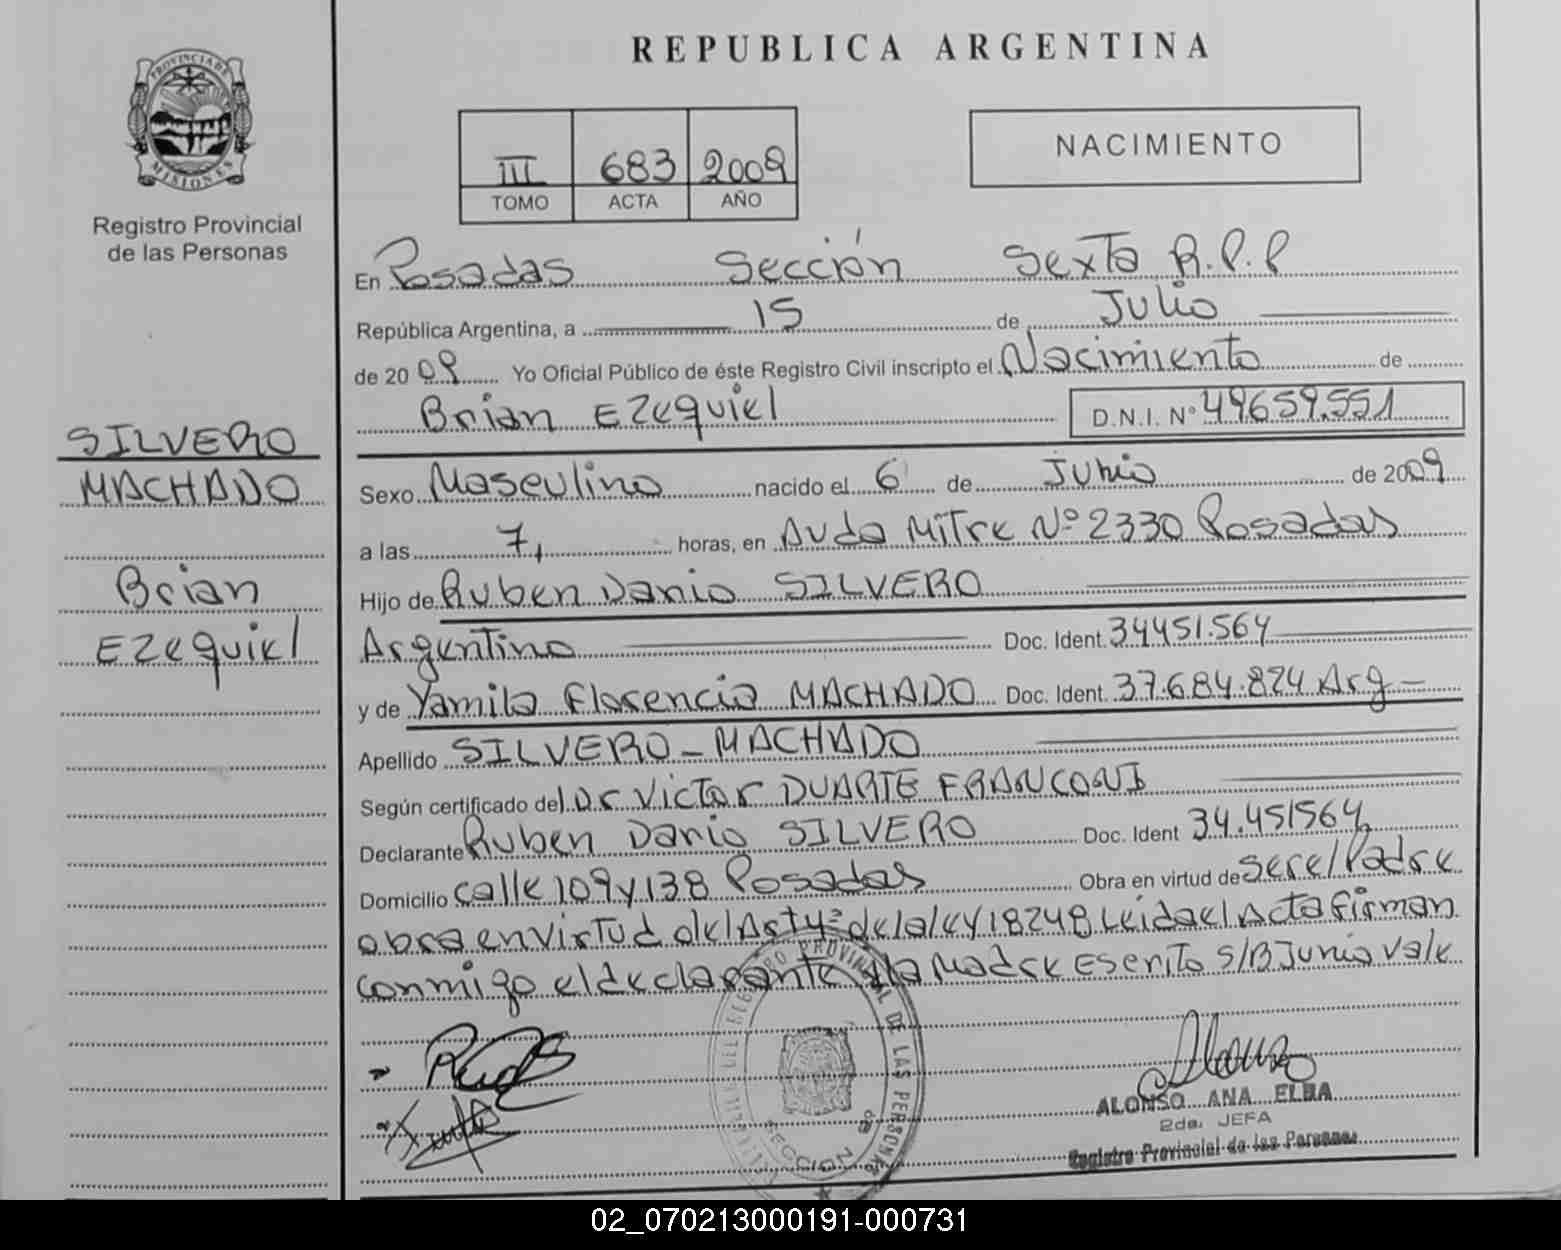 REPUBLICA ARGENTINA
PROVINCIA DE
MISIONES
Registro Provincial
de las Personas
III 683 2009
TOMO ACTA AÑO
NACIMIENTO
En Posadas Sección Sexta R.P.P
República Argentina, a 15 de Julio
de 2009 Yo Oficial Público de éste Registro Civil inscripto el Nacimiento de
Brian Ezequiel D.N.I. Nº 49659.551
SILVERO
MACHADO
Brian
Ezequiel
Sexo Masculino nacido el 6 de Junio de 2009
a las 7, horas, en Avda Mitre Nº 2330 Posadas
Hijo de Ruben Dario SILVERO
Argentino Doc. Ident. 34451.564
y de Yamila Florencia MACHADO Doc. Ident. 37.684.824 Arg-
Apellido SILVERO - MACHADO
Según certificado del Dr Victor DUARTE FRANCONI
Declarante Ruben Dario SILVERO Doc. Ident 34.451564
Domicilio calle 109 y 138 Posadas Obra en virtud de ser el Padre
obra en virtud del Art 4º de la ley 18248 Leida el Acta firman
conmigo el declarante y la Madre Escrito S/B Junio Vale
REGISTRO PROVINCIAL DE LAS PERSONAS
SECCION 6ª
ALONSO ANA ELBA
2da. JEFA
Registro Provincial de las Personas
02_070213000191-000731